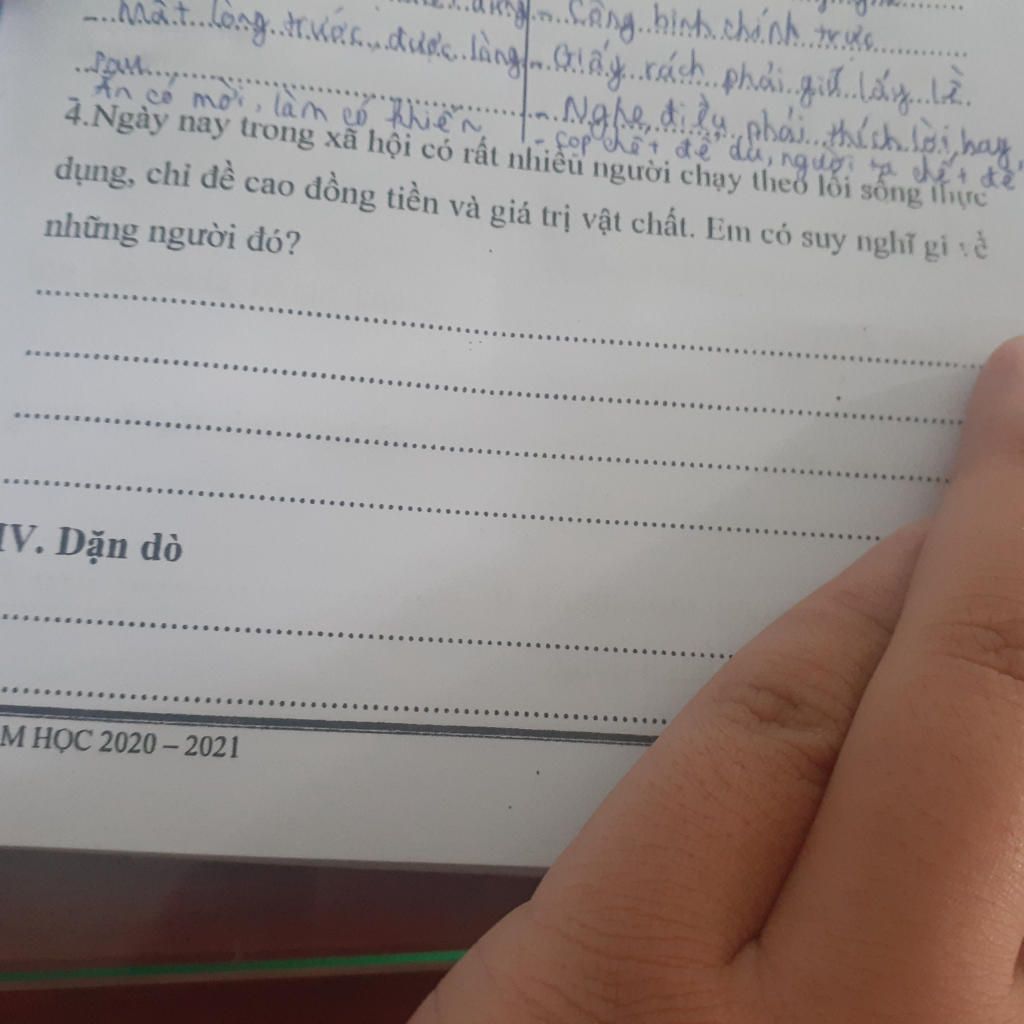 dùng - Công bình chính trực
- Mất lòng trước, được lòng - Giấy rách phải giữ lấy lề.
sau - Nghe điều phải, thích lời hay,
- Ăn có mời, làm có khiến - cọp chết để da, người ta chết để
4.Ngày nay trong xã hội có rất nhiều người chạy theo lối sống thực
dụng, chỉ đề cao đồng tiền và giá trị vật chất. Em có suy nghĩ gì về
những người đó?
IV. Dặn dò
M HỌC 2020 – 2021